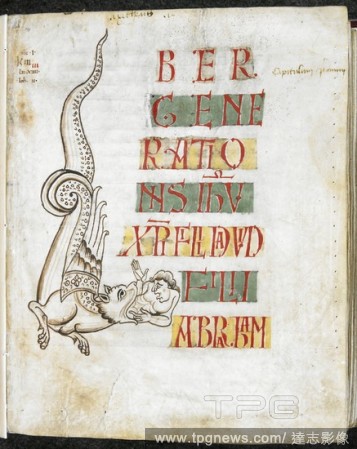 BER
GENE
RATIO
NIS IHU
XPI FILI DAVID
FILII
ABRAHAM
Capitulum primum
TPG
www.tpgnews.com/ 達志影像